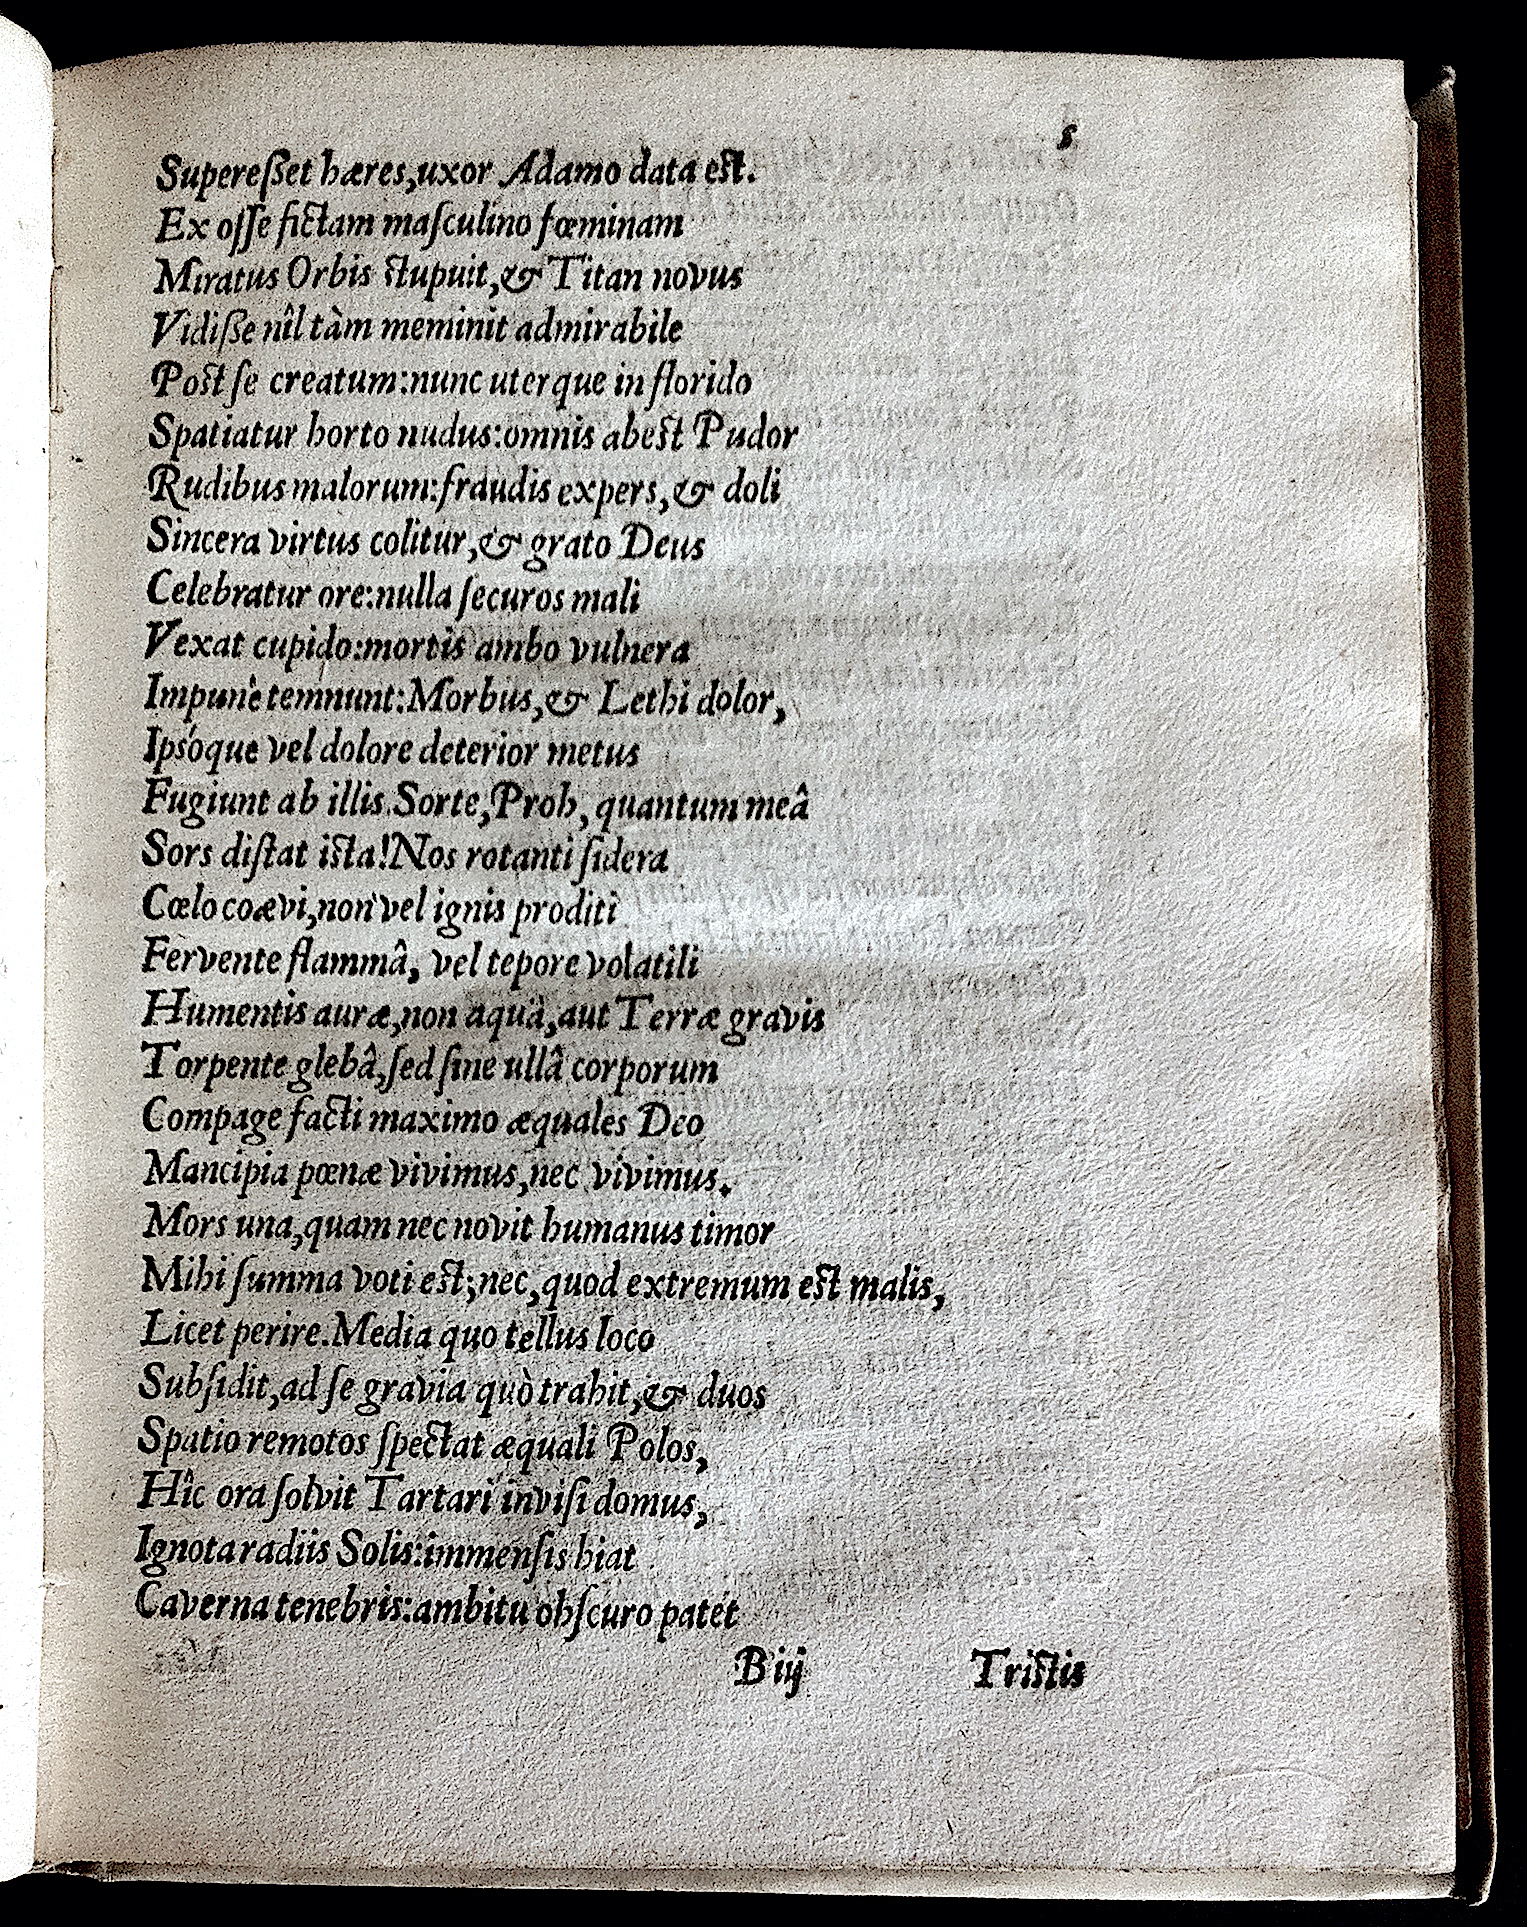 5
Supereſſet hæres,uxor Adamo data eſt.
Ex oſſe fictam maſculino fœminam
Miratus Orbis ſtupuit,& Titan novus
Vidiſſe nîl tàm meminit admirabile
Poſt ſe creatum:nunc uterque in florido
Spatiatur horto nudus:omnis abeſt Pudor
Rudibus malorum:fraudis expers,& doli
Sincera virtus colitur,& grato Deus
Celebratur ore:nulla ſecuros mali
Vexat cupido:mortis ambo vulnera
Impunè temnunt:Morbus,& Lethi dolor,
Ipsóque vel dolore deterior metus
Fugiunt ab illis.Sorte,Proh, quantum meâ
Sors diſtat iſta!Nos rotanti ſidera
Cœlo coævi,non vel ignis proditi
Fervente flammâ, vel tepore volatili
Humentis auræ,non aquâ,aut Terræ gravis
Torpente glebâ,ſed ſine ullâ corporum
Compage facti maximo æquales Deo
Mancipia pœnæ vivimus,nec vivimus.
Mors una,quam nec novit humanus timor
Mihi ſumma voti eſt;nec,quod extremum eſt malis,
Licet perire.Media quo tellus loco
Subſidit,ad ſe gravia quò trahit,& duos
Spatio remotos ſpectat æquali Polos,
Hîc ora ſolvit Tartari inviſi domus,
Ignota radiis Solis:immenſis hiat
Caverna tenebris:ambitu obſcuro patet
B iij Triſtis